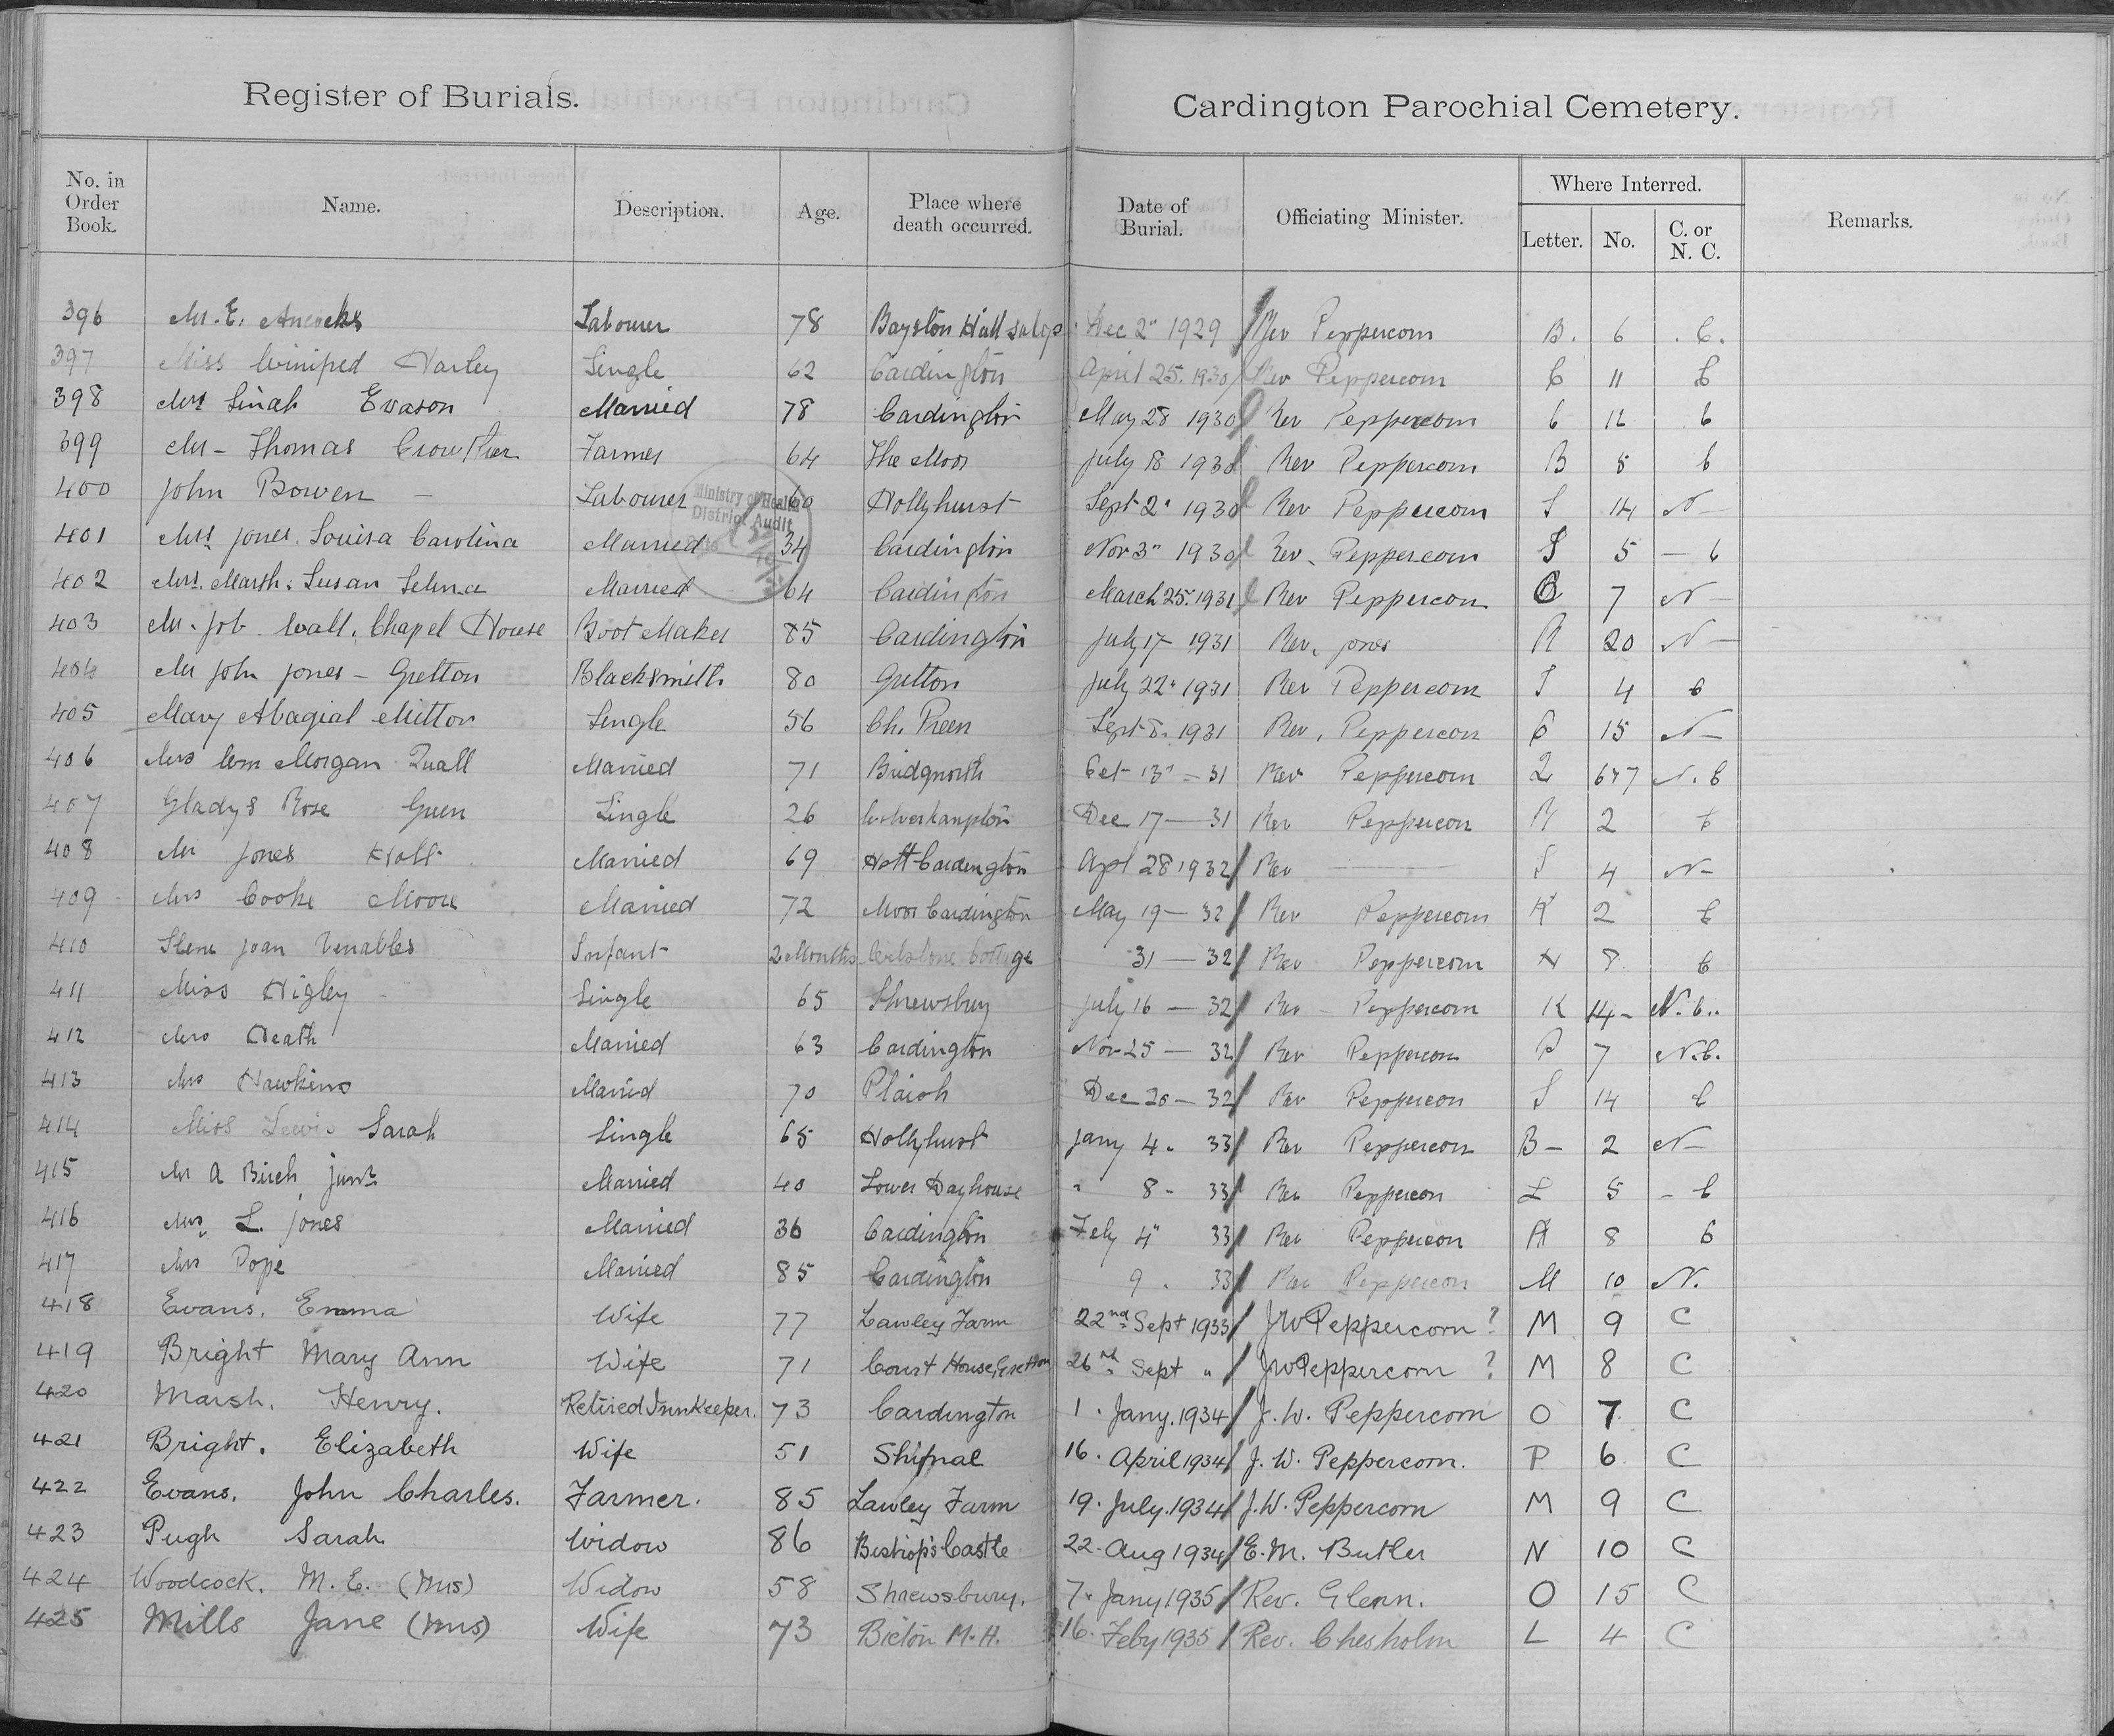 Register of Burials.
Cardington Parochial Cemetery.
No. in Order Book. Name. Description. Age. Place where death occurred. Date of Burial. Officiating Minister. Where Interred. Letter. No. C. or N. C. Remarks.
396 Mr. E. Labourer 78 Bayston Hall Salop Dec 2" 1929 Rev Peppercorn B. 6 . C.
397 Miss Winifred Harley Single 62 Cardington April 25. 1930 Rev Peppercorn C 11 C
398 Mrs Sinah Evason Married 78 Cardington May 28 1930 Rev Peppercorn C 12 C
399 Mr - Thomas Crowther Farmer 64 The Moor July 18 1930 Rev Peppercorn B 5 C
400 John Bowen - Labourer 60 Hollyhurst Sept 2" 1930 Rev Peppercorn S 14 N -
Ministry of Health
District Audit
401 Mrs Jones. Louisa Carolina Married 34 Cardington Nov 3" 1930 Rev. Peppercorn S 5 - C
402 Mrs. Marsh. Susan Selina Married 64 Cardington March 25. 1931 Rev Peppercorn 7 N -
403 Mr. Job Wall. Chapel House Boot Maker 85 Cardington July 17 1931 Rev. Jones R 20 N -
404 Mr John Jones - Gretton Blacksmith 80 Gretton July 22" 1931 Rev Peppercorn S 4 C
405 Mary Abagial Milton Single 56 Ch. Preen Sept 8. 1931 Rev. Peppercorn C 15 N -
406 Mrs Wm Morgan Quall Married 71 Bridgnorth Oct 13" - 31 Rev Peppercorn Q 6+7 N. C
407 Gladys Rose Green Single 26 Wolverhampton Dec 17 - 31 Rev Peppercorn R 2 C
408 Mr Jones Holt Married 69 Holt Cardington Apl 28 1932 Rev S 4 N -
409 Mrs Cooke Moore Married 72 Moor Cardington May 19 - 32 Rev Peppercorn 2 C
410 Joan Venables Infant 2 Months Cottage 31 - 32 Rev Peppercorn 8 C
411 Miss Higley - Single 65 Shrewsbury July 16 - 32 Rev - Peppercorn K 14 - N. C..
412 Mrs Heath Married 63 Cardington Nov 25 - 32 Rev Peppercorn P 7 N.C.
413 Mrs Hawkins Married 70 Plaish Dec 20 - 32 Rev Peppercorn S 14 C
414 Miss Lewis Sarah Single 65 Hollyhurst Jany 4. 33 Rev Peppercorn B - 2 N -
415 Mr A Birch Junr. Married 40 Lower Dayhouse " 8 - 33 Rev Peppercorn L 5 - C
416 Mrs L. Jones Married 36 Cardington Feby 4" 33 Rev Peppercorn 8 C
417 Mrs Pope Married 85 Cardington 9 . 33 Rev Peppercorn M 10 N.
418 Evans. Emma Wife 77 Lawley Farm 22nd Sept 1933 J W Peppercorn ? M 9 C
419 Bright Mary Ann Wife 71 Court House, Gretton 26th Sept " J W Peppercorn ? M 8 C
420 Marsh. Henry. Retired Innkeeper. 73 Cardington 1. Jany. 1934 J. W. Peppercorn O 7 C
421 Bright. Elizabeth Wife 51 Shifnal 16. April 1934 J. W. Peppercorn. P 6 C
422 Evans. John Charles. Farmer. 85 Lawley Farm 19. July. 1934 J. W. Peppercorn M 9 C
423 Pugh Sarah Widow 86 Bishop's Castle 22. Aug 1934 E. M. Butler N 10 C
424 Woodcock. M. E. (Mrs) Widow 58 Shrewsbury. 7. Jany 1935 Rev. Glenn. O 15 C
425 Mills Jane (Mrs) Wife 73 Bicton M. H. 16. Feby 1935 Rev. Chesholm L 4 C